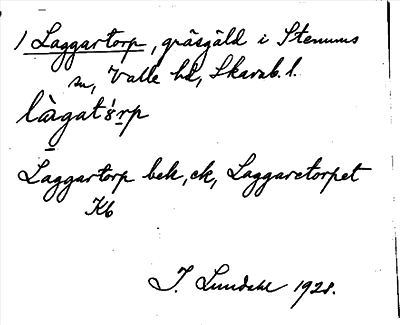 1) Laggartorp, gräsgäld i Stenums
sn, Valle hd, Skarab. l.
làgatórp
Laggartorp bek, ek, Laggaretorpet
Kb
I. Lundahl 1928.